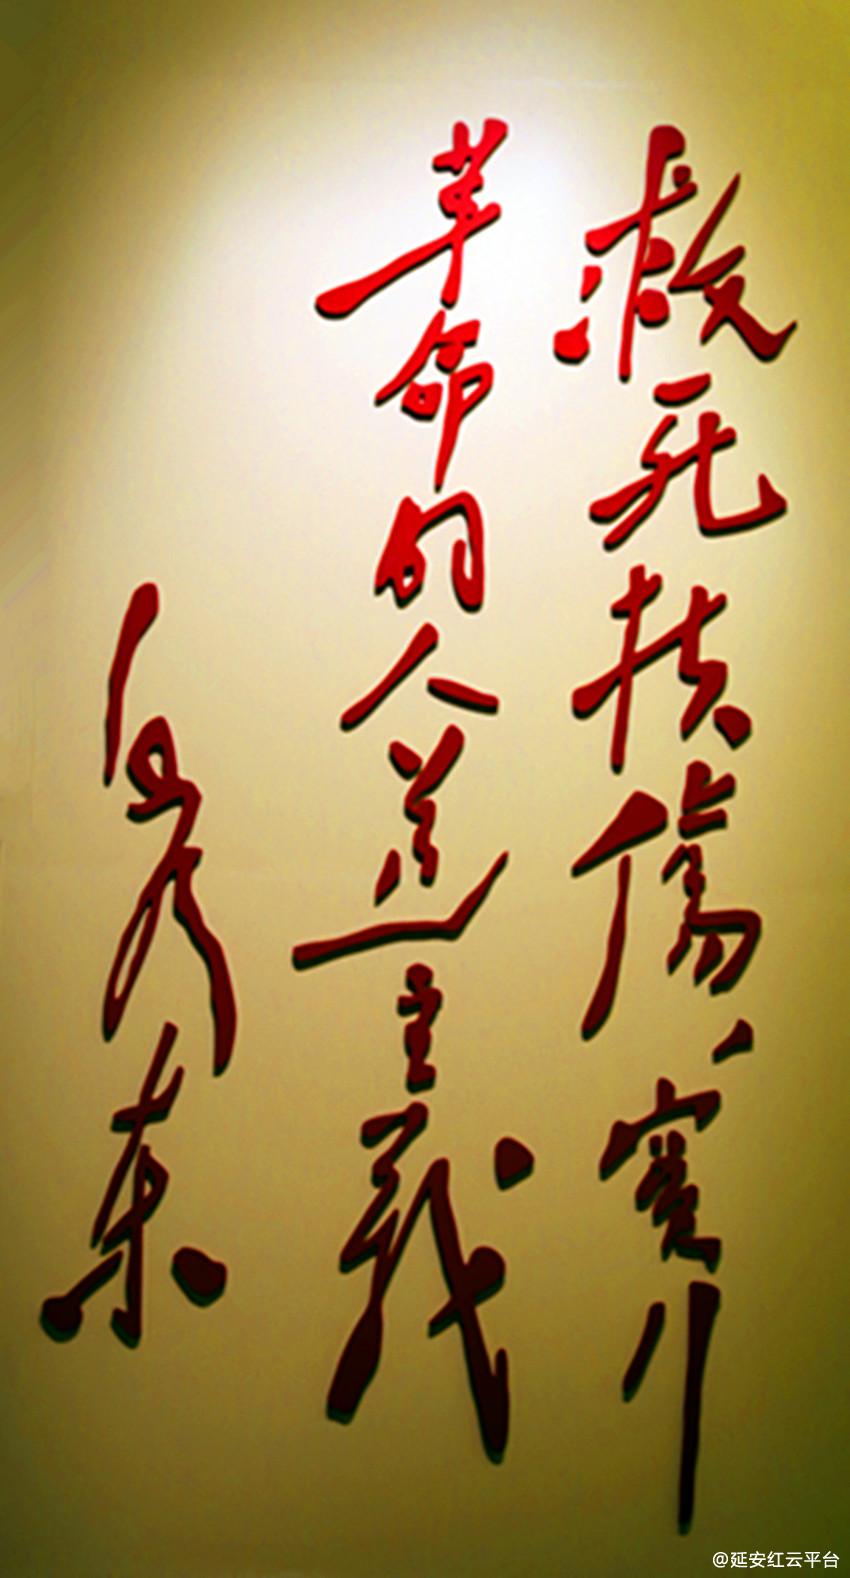 救死扶傷、實行
革命的人道主義
毛澤東
@延安红云平台